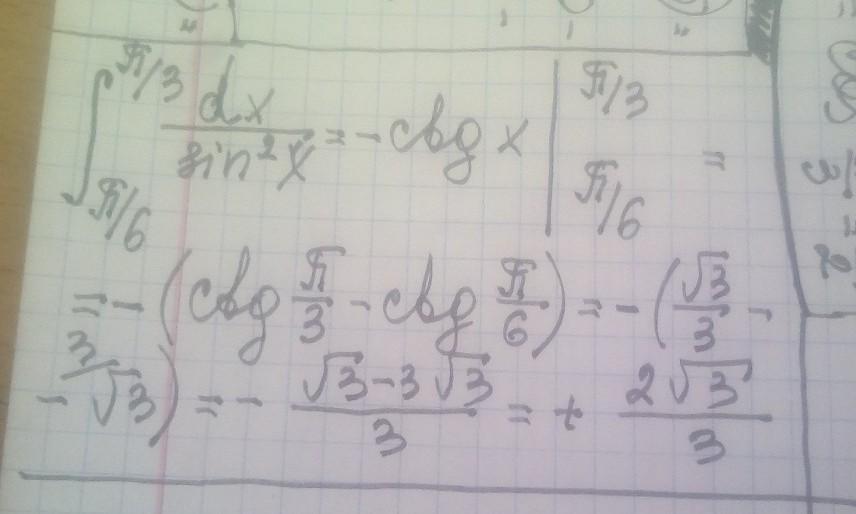 ∫_{π/6}^{π/3} dx/sin²x = - ctg x |_{π/6}^{π/3} =
= - (ctg π/3 - ctg π/6) = - (√3/3 -
- ³⁄√3) = - (√3 - 3√3)/3 = + 2√3/3